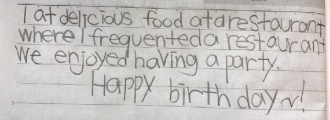 I at delicious food at a restaurant
where I frequented a restaurant
We enjoyed having a party.
Happy birthday~!